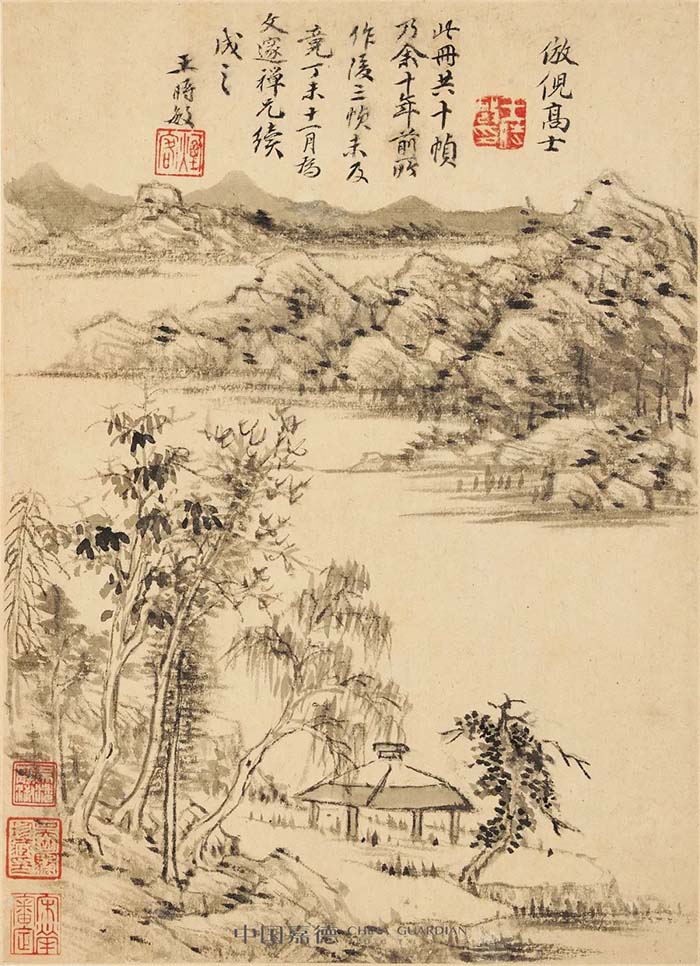 倣倪高士
此冊共十幀
乃余十年前所
作後三幀未及
竟丁未十一月為
文邃禪兄續
成之
王時敏
煙客
中国嘉德 CHINA GUARDIAN